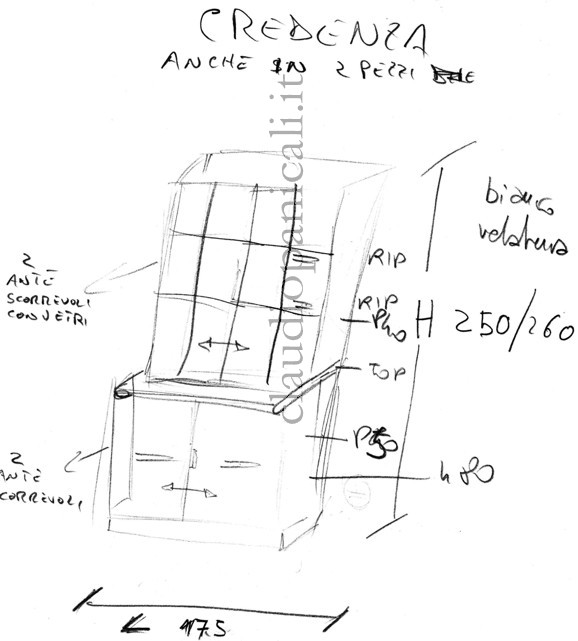 CREDENZA
ANCHE IN 2 PEZZI
claudiopanicali.it
bianco
velatura
2
ANTE
SCORREVOLI
CON VETRI
RIP
RIP
P40
H 250/260
TOP
P50
2
ANTE
SCORREVOLI
h 80
175